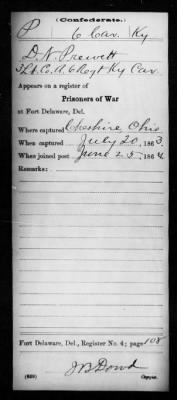 (Confederate.)
P 6 Cav. Ky
D. N. Prewett
Co. A, 6 Regt Ky Cav.
Appears on a register of
Prisoners of War
at Fort Delaware, Del.
Where captured Cheshire Ohio
When captured July 20, 1863.
When joined post June 25, 1864
Remarks:
Fort Delaware, Del., Register No. 4; page 108
J B Dowd
(639) Copyist.